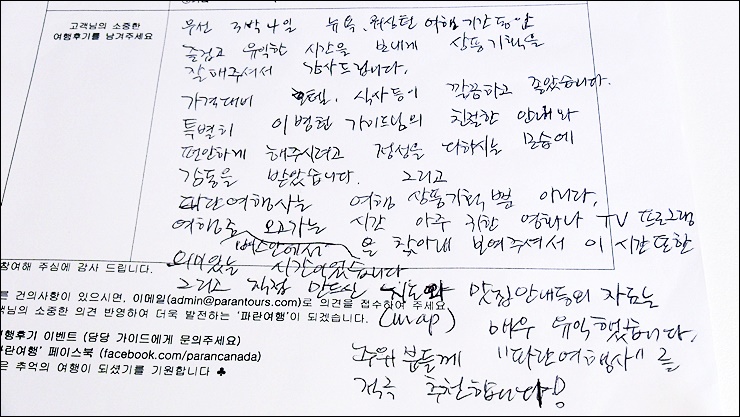 고객님의 소중한
여행후기를 남겨주세요
우선 3박4일 뉴욕, 워싱턴 여행기간동안
즐겁고 유익한 시간을 보내게 상품기획을
잘해주셔서 감사드립니다.
가격대비 호텔, 식사등이 깔끔하고 좋았습니다.
특별히 이병현 가이드님의 친절한 안내와
편안하게 해주시려고 정성을 다하시는 모습에
감동을 받았습니다. 그리고
파란여행사는 여행 상품기획뿐 아니라,
여행중 오고가는 시간 아주 귀한 영화나 TV 프로그램
버스안에서
을 찾아내 보여주셔서 이 시간 또한
의미있는 시간이었습니다
그리고 직접 만드신 지도와 맛집안내등의 자료는
(map) 매우 유익했습니다.
주위분들께 "파란여행사"를
적극 추천합니다!
참여해 주심에 감사 드립니다.
른 건의사항이 있으시면, 이메일(admin@parantours.com)로 의견을 접수하여 주세요.
객님의 소중한 의견 반영하여 더욱 발전하는 '파란여행'이 되겠습니다.
여행후기 이벤트 (담당 가이드에게 문의주세요)
파란여행' 페이스북 (facebook.com/parancanada)
은 추억의 여행이 되셨기를 기원합니다 ♣